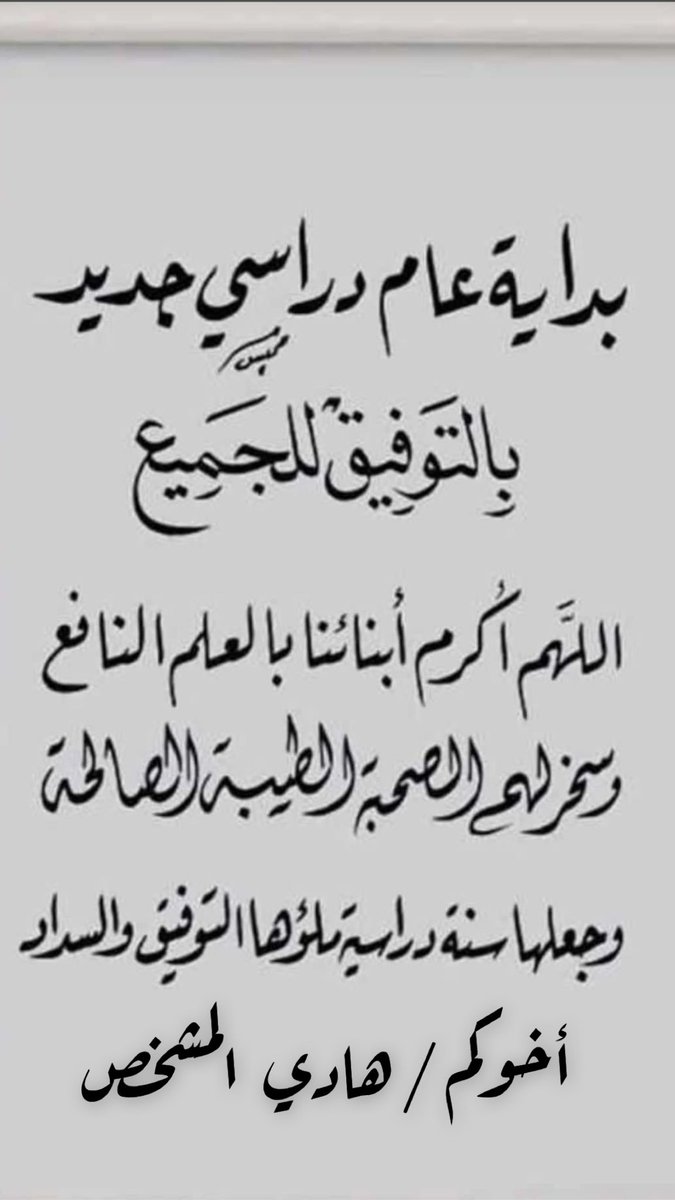 بداية عام دراسي جديد
بِالتَوَفِيق للجَمِيع
اللهَّم اكُرم أبنائنا بالعلم النافع
وسخر لهم الصحبة الطيبة الصالحة
وجعلها سنة دراسية ملؤها التوفيق والسداد
أخوكم / هادي المشخص